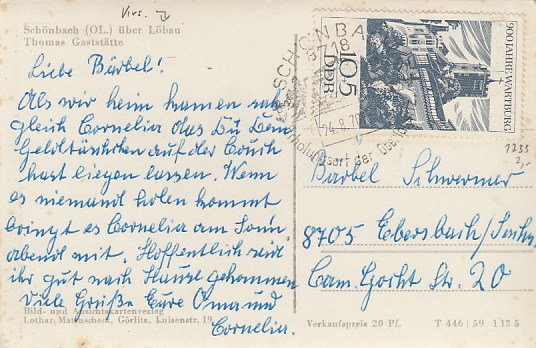 Virs.
Schönbach (OL.) über Löbau
Thomas Gaststätte
Liebe Bärbel!
Als wir heim kamen sah
gleich Cornelia das Du Dein
Geldtäschchen auf der Couch
hast liegen lassen. Wenn
es niemand holen kommt
bringt es Cornelia am Sonn-
abend mit. Hoffentlich seid
ihr gut nach Hause gekommen
Viele Grüße Eure Oma und
Cornelia.
Bild- und Ansichtskartenverlag
Lothar Matzuscheck, Görlitz, Luisenstr. 19
SCHÖNBACH
8718
24.8.70
Erholungsort der Oberlau
10+5
DDR
900 JAHRE WARTBURG
1235
2,-
Bärbel Schwermer
8705 Ebersbach/Sachs.
Cam. Gocht Str. 20
Verkaufspreis 20 Pf. T 446 | 59 I 12 5